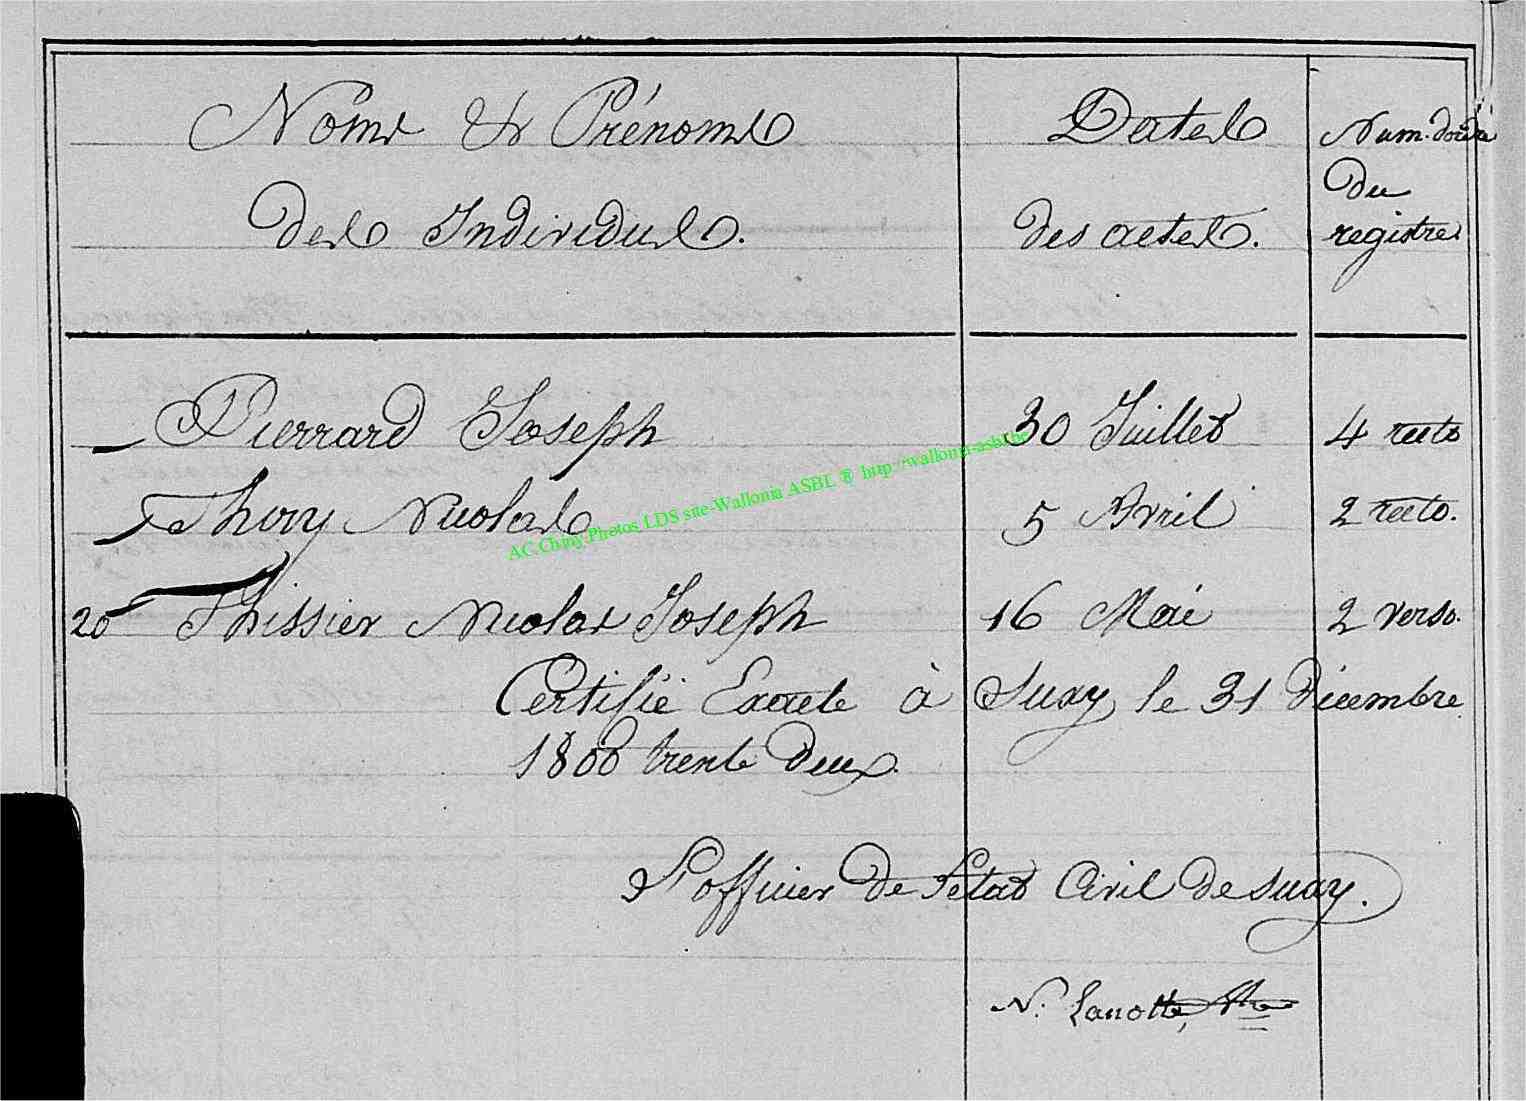 Noms & Prénoms
des Individus.
Dates
des actes.
Num. d'ordre
du
registre
Pierrard Joseph 30 Juillet 4 recto
Thiry Nicolas 5 Avril 2 recto.
20 Thissier Nicolas Joseph 16 Mai 2 verso.
Certifié Exacte à Suxy le 31 Décembre
1800 trente deux
L'officier de l'état Civil de Suxy.
N. Lanotte
AC.Chiny.Photos LDS site-Wallonia ASBL ® http://wallonia-asbl.be